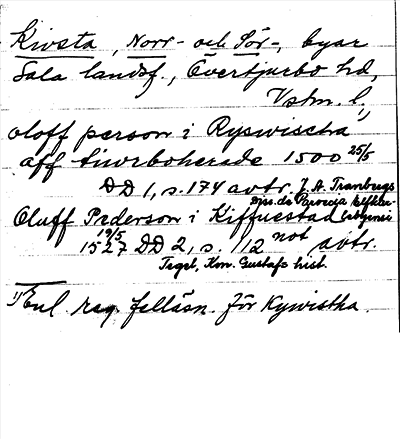 Kivsta, Norr- och Sör-, byar
Sala landsf., Övertjurbo hd,
Vstm. l.,
oloff person i Ryswischa
aff tiwrboherade 1500 25/5
DD 1, s. 174 avtr. J. A. Tranbergs
Djss. de Paroecia Kelfster-
Oluff Pederson i Kiffuestad
19/5
1527 DD 2, s. 112 not avtr.
Tegel, Kon. Gustafs hist.
1) Enl. reg. felläsn. för Kywistha.